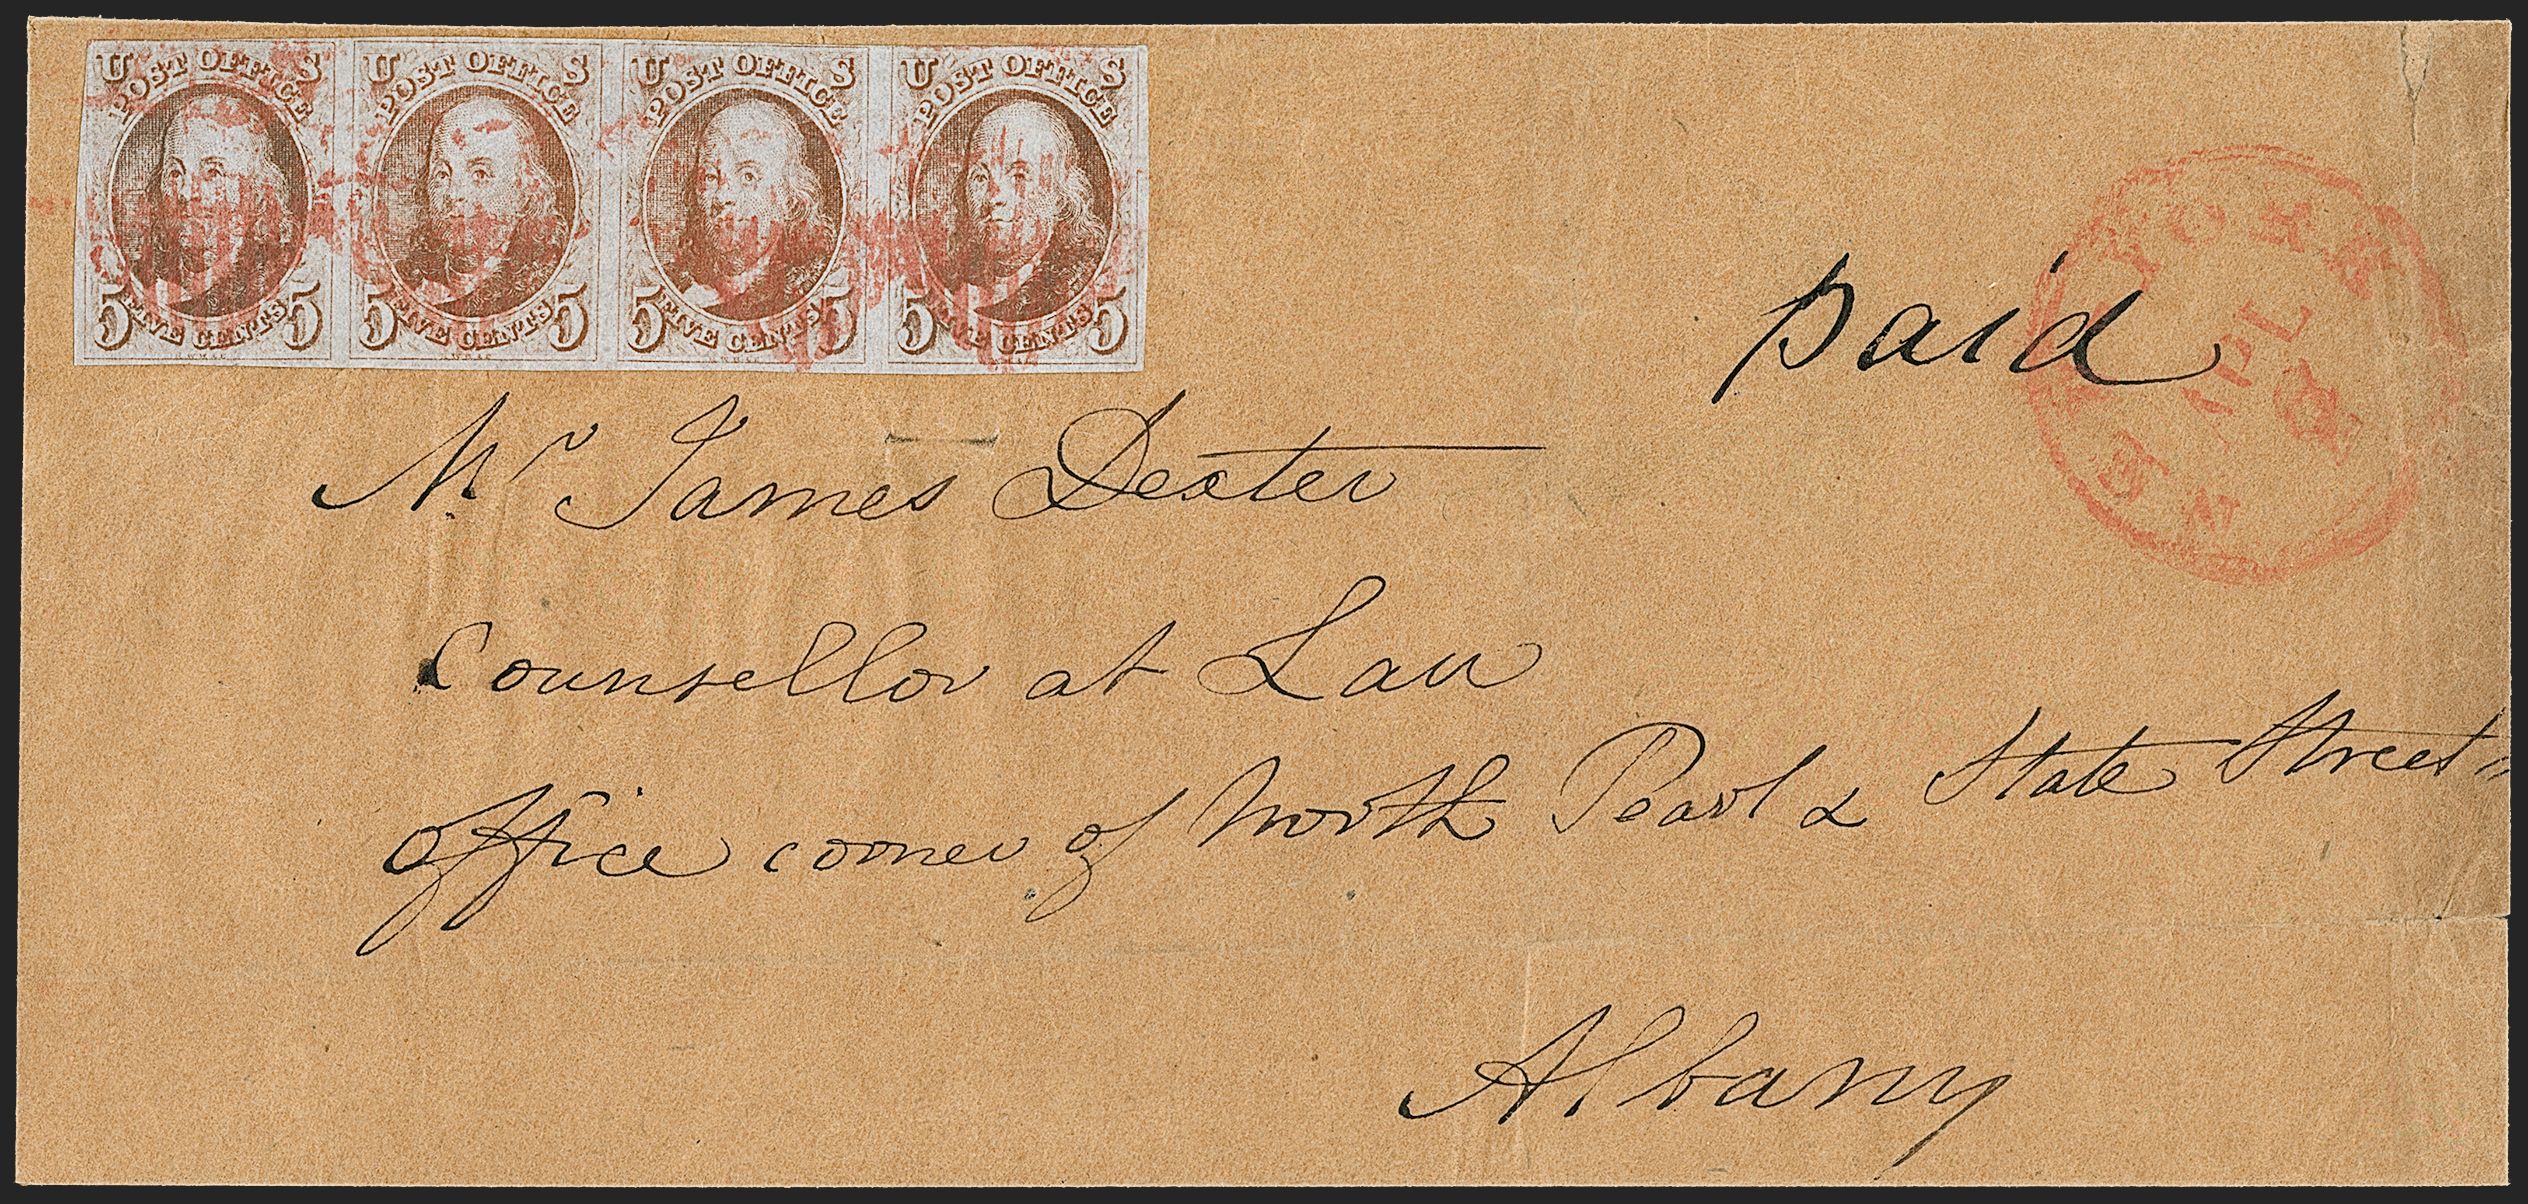 U S U S U S U S
POST OFFICE POST OFFICE POST OFFICE POST OFFICE
5 FIVE CENTS 5 5 FIVE CENTS 5 5 FIVE CENTS 5 5 FIVE CENTS 5
paid
NEW YORK
APL
Mr James Dexter
Counsellor at Law
Office corner of North Pearl & State Street
Albany